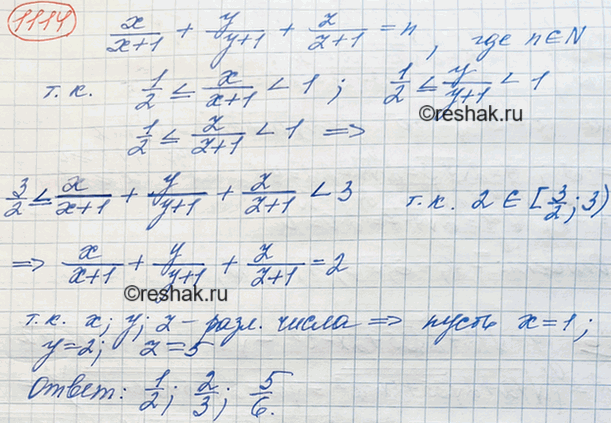 1114
x/(x+1) + y/(y+1) + z/(z+1) = n, где n∈N
т.к. 1/2 ≤ x/(x+1) < 1; 1/2 ≤ y/(y+1) < 1
1/2 ≤ z/(z+1) < 1 ⇒
3/2 ≤ x/(x+1) + y/(y+1) + z/(z+1) < 3 т.к. 2 ∈ [3/2; 3)
©reshak.ru
⇒ x/(x+1) + y/(y+1) + z/(z+1) = 2
©reshak.ru
т.к. x; y; z - разл. числа ⇒ пусть x=1;
y=2; z=5
Ответ: 1/2; 2/3; 5/6.